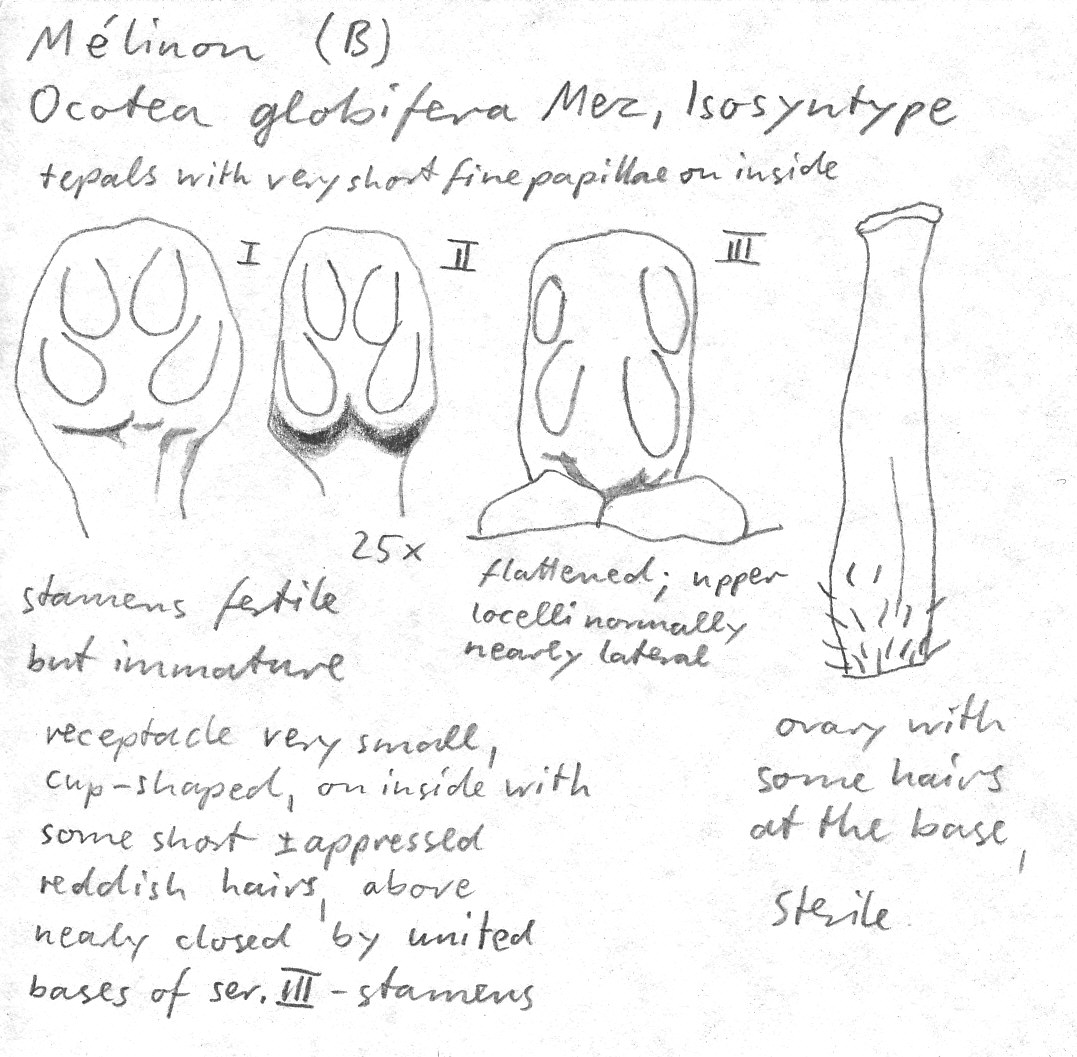 Mélinon (B)
Ocotea globifera Mez, Isosyntype
tepals with very short fine papillae on inside
I
II
III
25x
flattened; upper
locelli normally
nearly lateral
stamens fertile
but immature
receptacle very small,
cup-shaped, on inside with
some short ± appressed
reddish hairs, above
nealy closed by united
bases of ser. III - stamens
ovary with
some hairs
at the base,
sterile